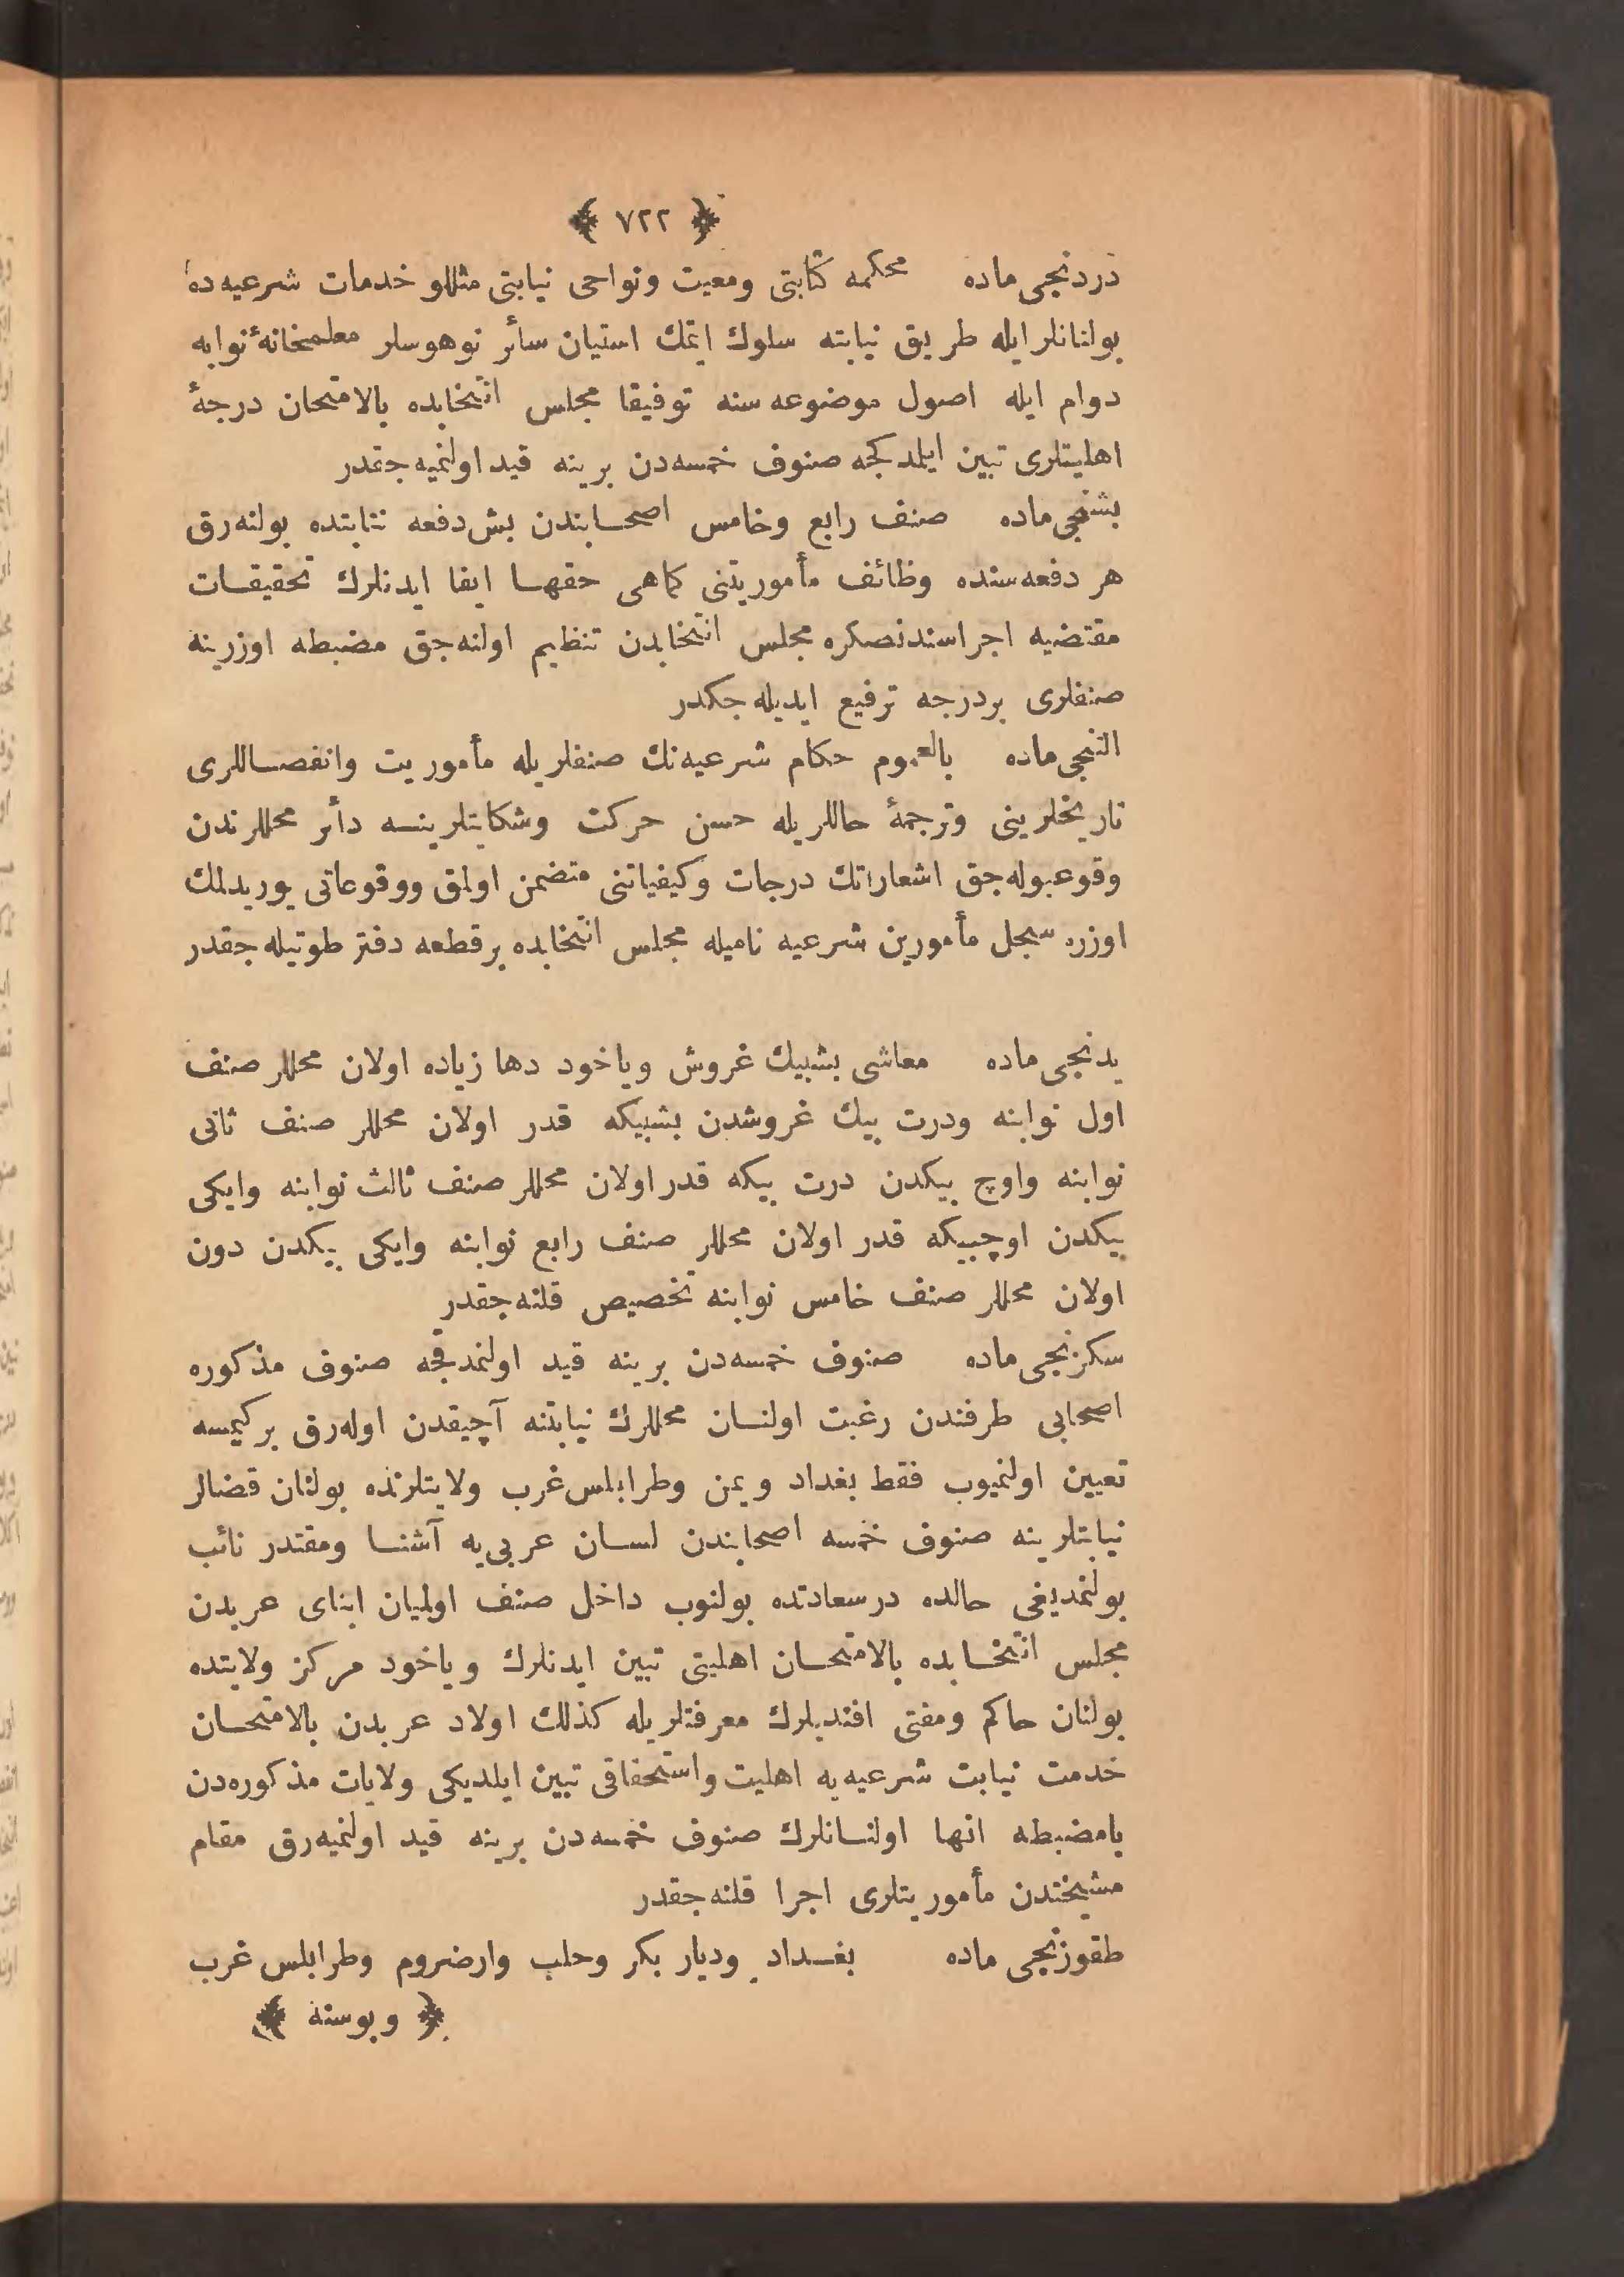 ﴿ ٧٢٢ ﴾
دردنجی ماده محكمه كتابتی ومعیت ونواحی نیابتی مثللو خدمات شرعیه ده
بولنانلر ایله طریق نیابته سلوك ایتمك استیان سائر نوهوسلر معلمخانهٔ نوابه
دوام ایله اصول موضوعه سنه توفیقا مجلس انتخابده بالامتحان درجهٔ
اهلیتلری تبین ایلدكجه صنوف خمسه دن برینه قید اولنمیه جقدر
بشنجی ماده صنف رابع وخامس اصحابندن بش دفعه نیابتده بولنه رق
هر دفعه سنده وظائف مأموریتنی كماهی حقها ایفا ایدنلرك تحقیقات
مقتضیه اجراسندنصكره مجلس انتخابدن تنظیم اولنه جق مضبطه اوزرینه
صنفلری بردرجه ترفیع ایدیله جكدر
التنجی ماده بالعموم حكام شرعیه نك صنفلریله مأموریت وانفصاللری
تاریخلرینی وترجمهٔ حاللریله حسن حركت وشكایتلرینه دائر محللرندن
وقوعبوله جق اشعاراتك درجات وكیفیاتنی متضمن اولمق ووقوعاتی یوریدلمك
اوزره سجل مأمورین شرعیه نامیله مجلس انتخابده برقطعه دفتر طوتیله جقدر
یدنجی ماده معاشی بشبیك غروش ویاخود دها زیاده اولان محللر صنف
اول نوابنه ودرت بیك غروشدن بشبیكه قدر اولان محللر صنف ثانی
نوابنه واوچ بیكدن درت بیكه قدر اولان محللر صنف ثالث نوابنه وایكی
بیكدن اوچبیكه قدر اولان محللر صنف رابع نوابنه وایكی بیكدن دون
اولان محللر صنف خامس نوابنه تخصیص قلنه جقدر
سكزنجی ماده صنوف خمسه دن برینه قید اولنمدقجه صنوف مذكوره
اصحابی طرفندن رغبت اولنان محللرك نیابتنه آچیقدن اوله رق بركیمسه
تعیین اولنمیوب فقط بغداد ویمن وطرابلس غرب ولایتلرنده بولنان قضالر
نیابتلرینه صنوف خمسه اصحابندن لسان عربی یه آشنا ومقتدر نائب
بولنمدیغی حالده درسعادتده بولنوب داخل صنف اولمیان ابنای عربدن
مجلس انتخابده بالامتحان اهلیتی تبین ایدنلرك ویاخود مركز ولایتده
بولنان حاكم ومفتی افندیلرك معرفتلریله كذلك اولاد عربدن بالامتحان
خدمت نیابت شرعیه یه اهلیت واستحقاقی تبین ایلدیكی ولایات مذكوره دن
بامضبطه انها اولنانلرك صنوف خمسه دن برینه قید اولنمیه رق مقام
مشیختدن مأموریتلری اجرا قلنه جقدر
طقوزنجی ماده بغداد ودیار بكر وحلب وارضروم وطرابلس غرب
﴿ وبوسنه ﴾